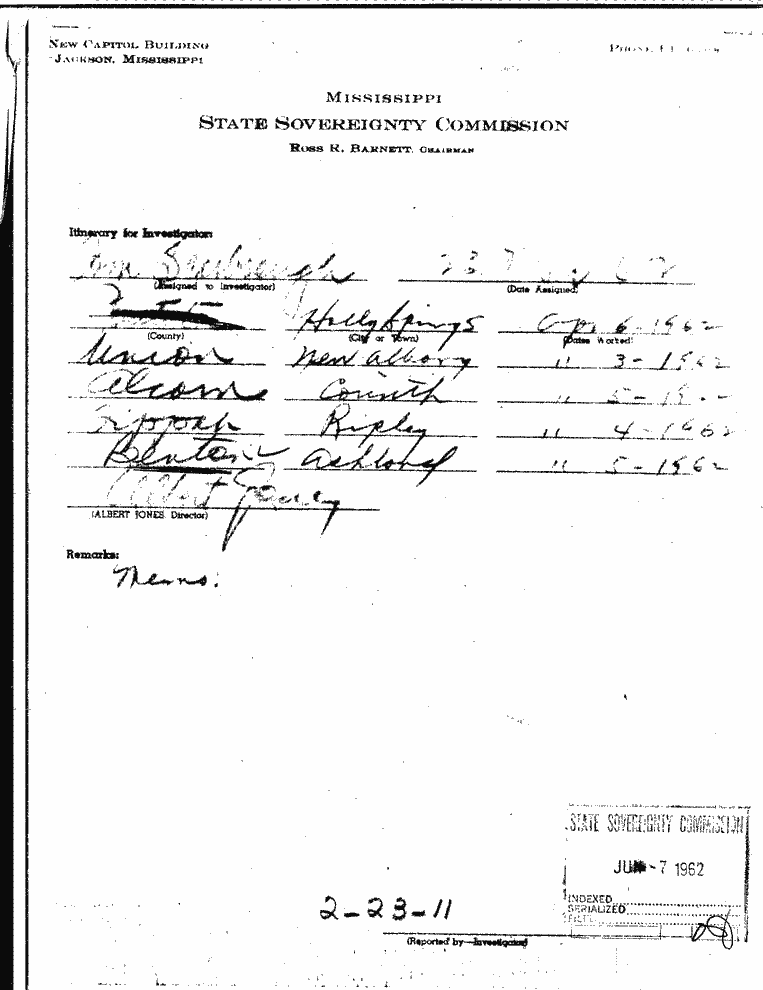 NEW CAPITOL BUILDING
JACKSON, MISSISSIPPI
MISSISSIPPI
STATE SOVEREIGNTY COMMISSION
ROSS R. BARNETT, CHAIRMAN
Itinerary for Investigator:
Tom Scarbrough 62
(Assigned to Investigator) (Date Assigned)
Holly Springs Apr 6 - 1962
(County) (City or Town) (Dates Worked)
Union New Albany " 3 - 1962
Alcorn Corinth " 5 - 19
Tippah Ripley " 4 - 1962
Benton Ashland " 5 - 1962
Albert Jones
(ALBERT JONES, Director)
Remarks:
Memo.
STATE SOVEREIGNTY COMMISSION
JUN - 7 1962
INDEXED
SERIALIZED
FILED
2-23-11
(Reported by—Investigator)